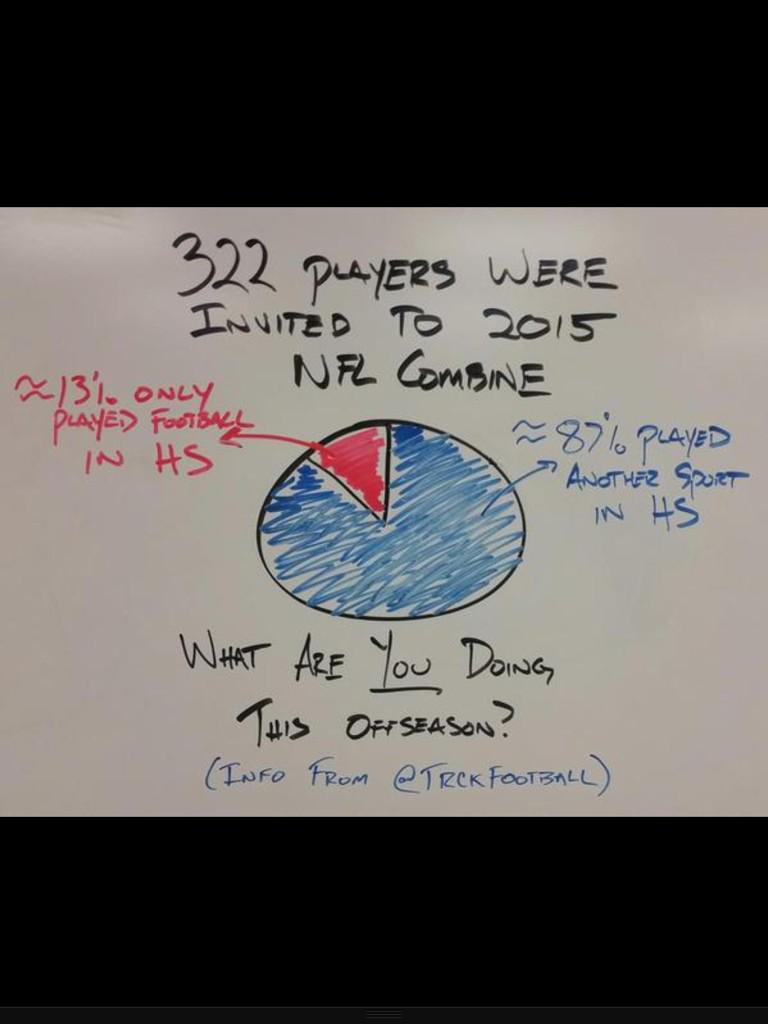 322 PLAYERS WERE
INVITED TO 2015
NFL COMBINE
≈13% ONLY
PLAYED FOOTBALL
IN HS
≈87% PLAYED
ANOTHER SPORT
IN HS
WHAT ARE YOU DOING
THIS OFFSEASON?
(INFO FROM @TRCKFOOTBALL)